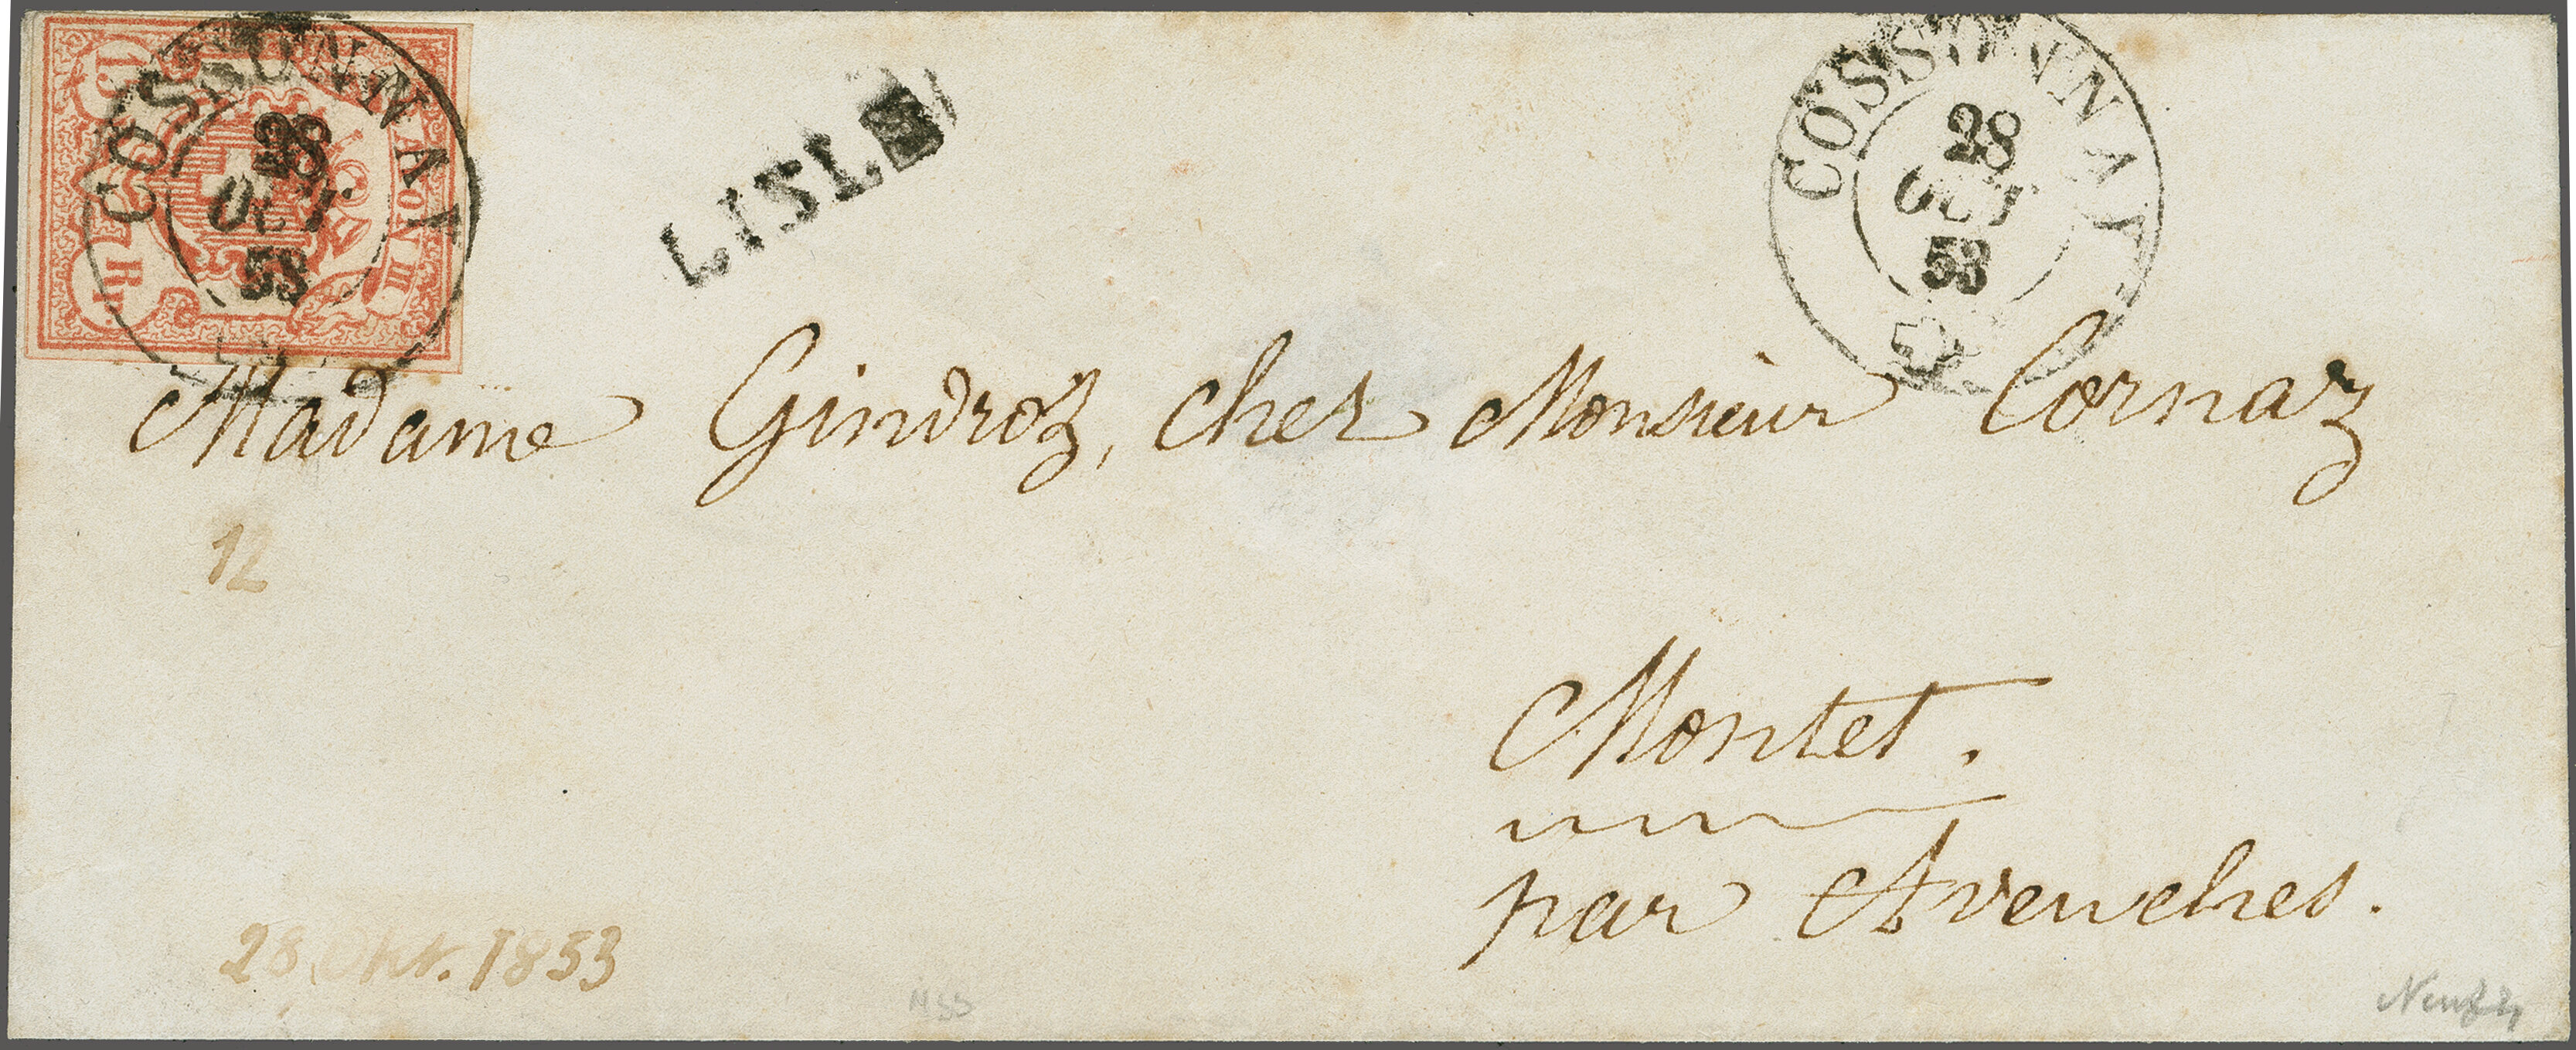 15
RAYON III
Rp.
COSSONNAY
28
OCT
53
LISLE
COSSONNAY
28
OCT
53
Madame Gindroz, chez Monsieur Cornaz
12
Montet.
par Avenches.
28. Okt. 1853